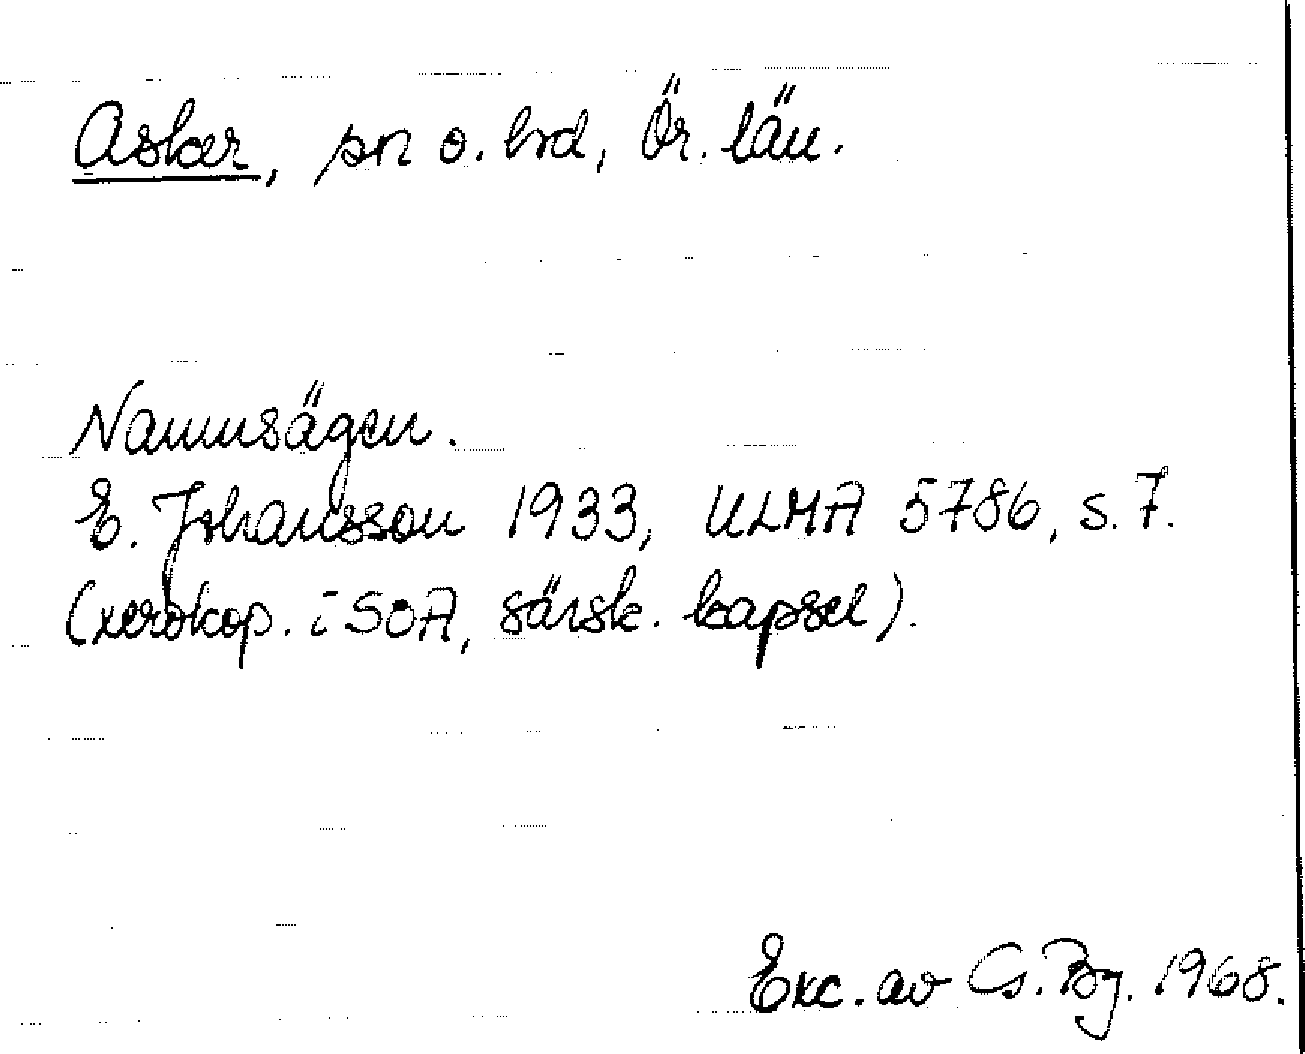 Asker, sn o. hrd, Ör. län.
Namnsägen.
E. Johansson 1933, ULMA 5786, s. 7.
(xerokop. i SOA, särsk. kapsel).
Exc. av Cs. Bg. 1968.